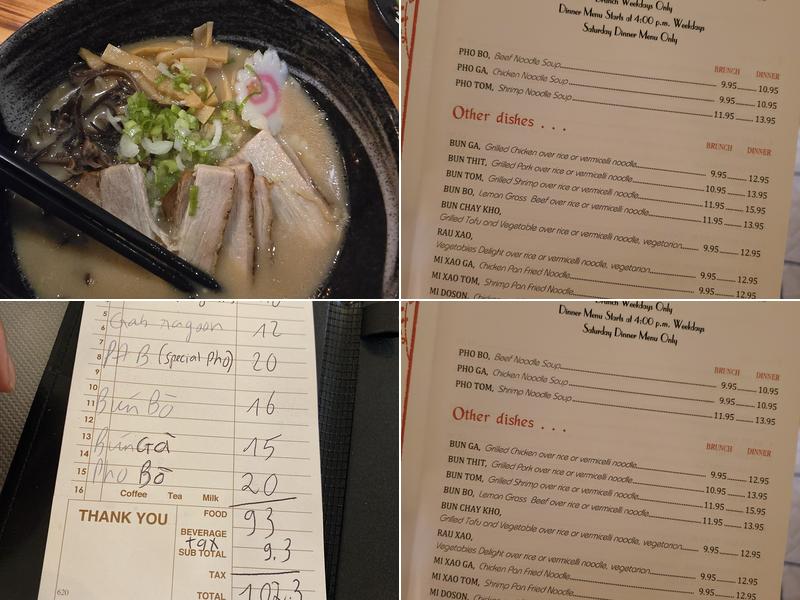 Brunch Weekdays Only
Dinner Menu Starts at 4:00 p.m. Weekdays
Saturday Dinner Menu Only
BRUNCH DINNER
PHO BO, Beef Noodle Soup 9.95 10.95
PHO GA, Chicken Noodle Soup 9.95 10.95
PHO TOM, Shrimp Noodle Soup 11.95 13.95
Other dishes . . .
BRUNCH DINNER
BUN GA, Grilled Chicken over rice or vermicelli noodle 9.95 12.95
BUN THIT, Grilled Pork over rice or vermicelli noodle 10.95 13.95
BUN TOM, Grilled Shrimp over rice or vermicelli noodle 11.95 15.95
BUN BO, Lemon Grass Beef over rice or vermicelli noodle 11.95 13.95
BUN CHAY KHO,
Grilled Tofu and Vegetable over rice or vermicelli noodle, vegetarian 9.95 12.95
RAU XAO,
Vegetables Delight over rice or vermicelli noodle, vegetarian 9.95 12.95
MI XAO GA, Chicken Pan Fried Noodle
MI XAO TOM, Shrimp Pan Fried Noodle
MI DOSON,
5
6 Crab ragoon 12
7
8 (special Pho) 20
9
10
11 Bún Bò 16
12
13 Bún Gà 15
14
15 Pho Bò 20
16 Coffee Tea Milk
THANK YOU
FOOD 93
BEVERAGE
tax
SUB TOTAL 9.3
TAX
TOTAL 102.3
620
Brunch Weekdays Only
Dinner Menu Starts at 4:00 p.m. Weekdays
Saturday Dinner Menu Only
BRUNCH DINNER
PHO BO, Beef Noodle Soup 9.95 10.95
PHO GA, Chicken Noodle Soup 9.95 10.95
PHO TOM, Shrimp Noodle Soup 11.95 13.95
Other dishes . . .
BRUNCH DINNER
BUN GA, Grilled Chicken over rice or vermicelli noodle 9.95 12.95
BUN THIT, Grilled Pork over rice or vermicelli noodle 10.95 13.95
BUN TOM, Grilled Shrimp over rice or vermicelli noodle 11.95 15.95
BUN BO, Lemon Grass Beef over rice or vermicelli noodle 11.95 13.95
BUN CHAY KHO,
Grilled Tofu and Vegetable over rice or vermicelli noodle, vegetarian 9.95 12.95
RAU XAO,
Vegetables Delight over rice or vermicelli noodle, vegetarian
MI XAO GA, Chicken Pan Fried Noodle
MI XAO TOM, Shrimp Pan Fried Noodle
MI DOSON,